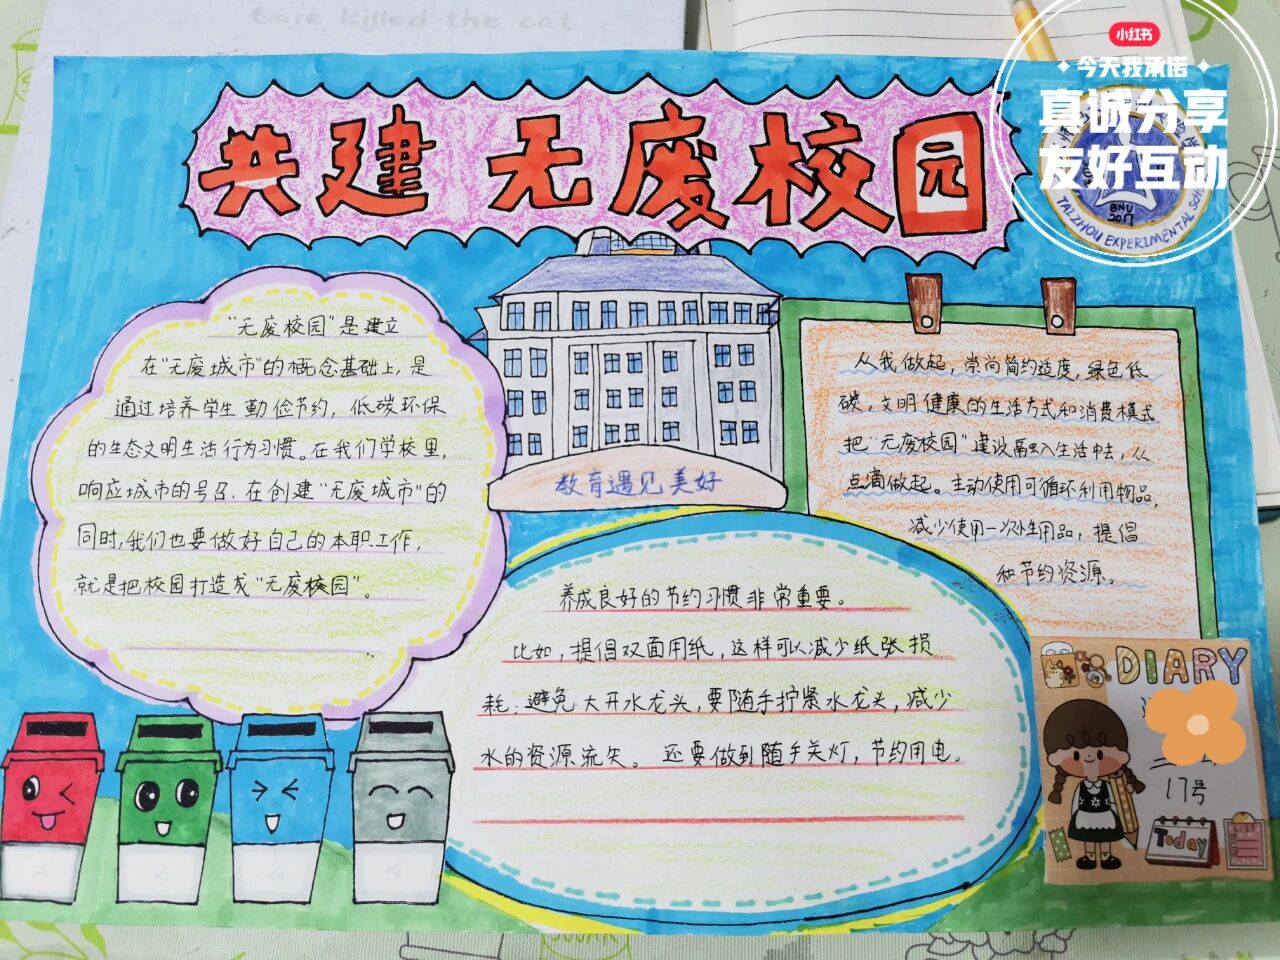 Care killed the cat
小红书
今天我承诺
真诚分享
友好互动
共建 无废校园
BNU
2017
TAIZHOU EXPERIMENTAL SCH
"无废校园"是建立
在"无废城市"的概念基础上,是
通过培养学生勤俭节约,低碳环保
的生态文明生活行为习惯。在我们学校里,
响应城市的号召,在创建"无废城市"的
同时,我们也要做好自己的本职工作,
就是把校园打造成"无废校园"。
教育遇见美好
从我做起,崇尚简约适度,绿色低
碳,文明健康的生活方式和消费模式
把"无废校园"建设融入生活中去,从
点滴做起。主动使用可循环利用物品,
减少使用一次性用品,提倡
和节约资源。
养成良好的节约习惯非常重要。
比如,提倡双面用纸,这样可以减少纸张损
耗;避免大开水龙头,要随手拧紧水龙头,减少
水的资源流失。还要做到随手关灯,节约用电。
DIARY
17号
Today
LIST
SUGAR